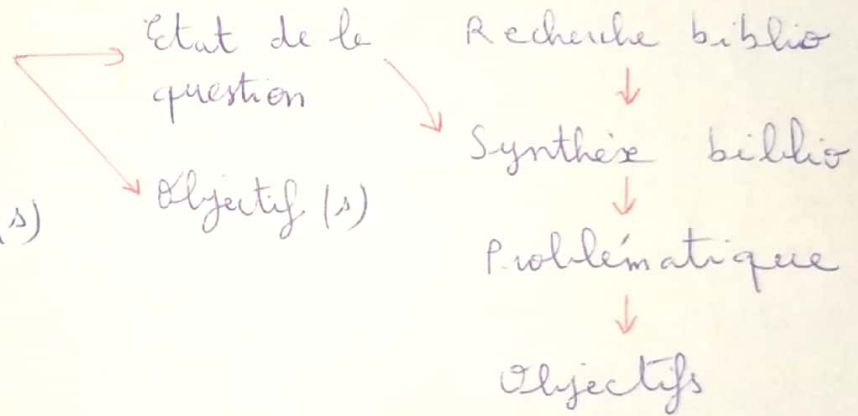 Etat de la
question
Objectif(s)
(s)
Recherche biblio
Synthèse biblio
Problématique
Objectifs